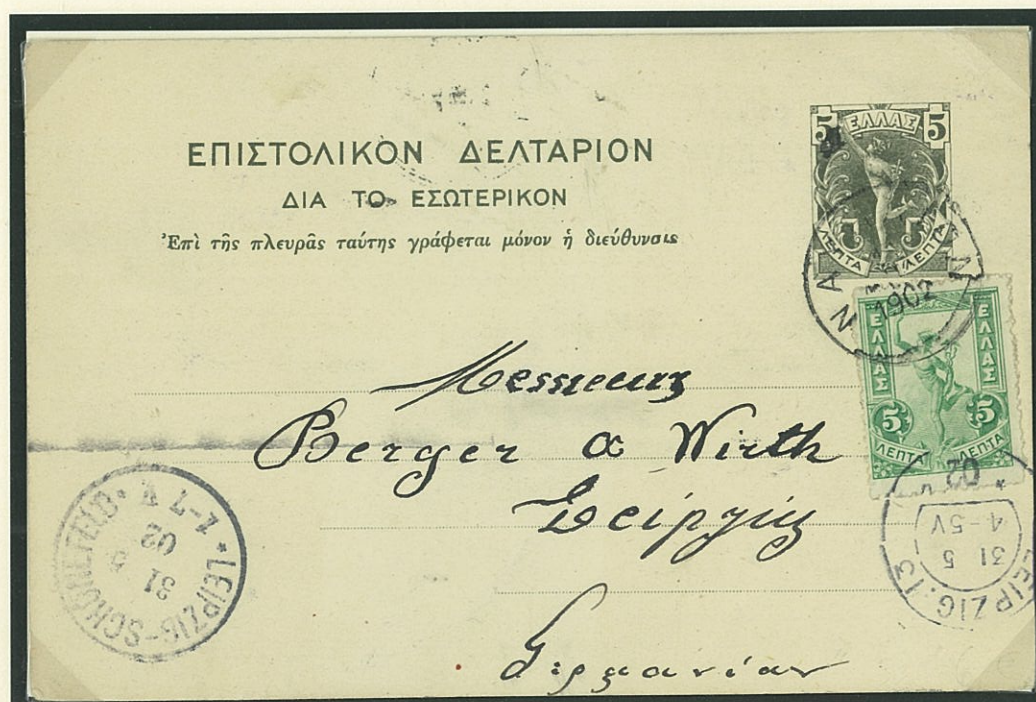 ΕΠΙΣΤΟΛΙΚΟΝ ΔΕΛΤΑΡΙΟΝ
ΔΙΑ ΤΟ ΕΣΩΤΕΡΙΚΟΝ
Ἐπὶ τῆς πλευρᾶς ταύτης γράφεται μόνον ἡ διεύθυνσις
5 ΕΛΛΑΣ 5
ΛΕΠΤΑ ΛΕΠΤΑ
1902
ΕΛΛΑΣ ΕΛΛΑΣ
5 5
ΛΕΠΤΑ ΛΕΠΤΑ
Messieurs
Berger & Wirth
Λειψίαν
Γερμανίαν
LEIPZIG-SCHÖNEFELD
31 5
02
LEIPZIG 13
31 5
4-5V
02